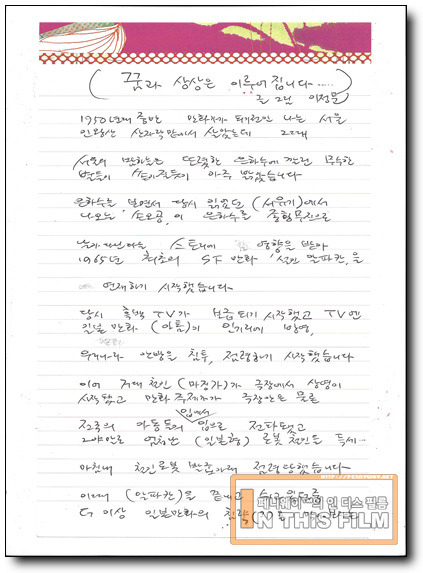 (꿈과 상상은 이루어 집니다.....)
글 그림 이정문
1950년대 중반 만화가가 되기전인 나는 서울
인왕산 산자락밑에서 살았는데 그때
서울의 밤하늘은 또렷한 은하수에 무수한
별들이 쏟아지듯이 아주 밝았습니다
은하수를 보면서 당시 읽었던 (서유기)에서
나오는 손오공이 은하수를 종횡무진으로
스토리에 영향을 받아
1965년 최초의 SF 만화 '설인 알파칸'을
연재하기 시작했습니다
당시 흑백 TV가 보급되기 시작했고 TV엔
일본 만화 (아톰)이 인기리에 방영,
우리나라 안방을 침투, 점령하기 시작했습니다
이어 거대 철인 (마징가)가 극장에서 상영이
시작됐고 만화 주제가가 극장안은 물론
전국의 아동들 입에서 입으로 전파됐고
그야말로 엄청난 (일본형) 로봇 철인들 득세...
마침내 철인로봇 점령당했습니다
이때 (알파칸)을 끝내고
더 이상 일본만화의 침략
페니웨이™의 인 디스 필름
IN THIS FILM